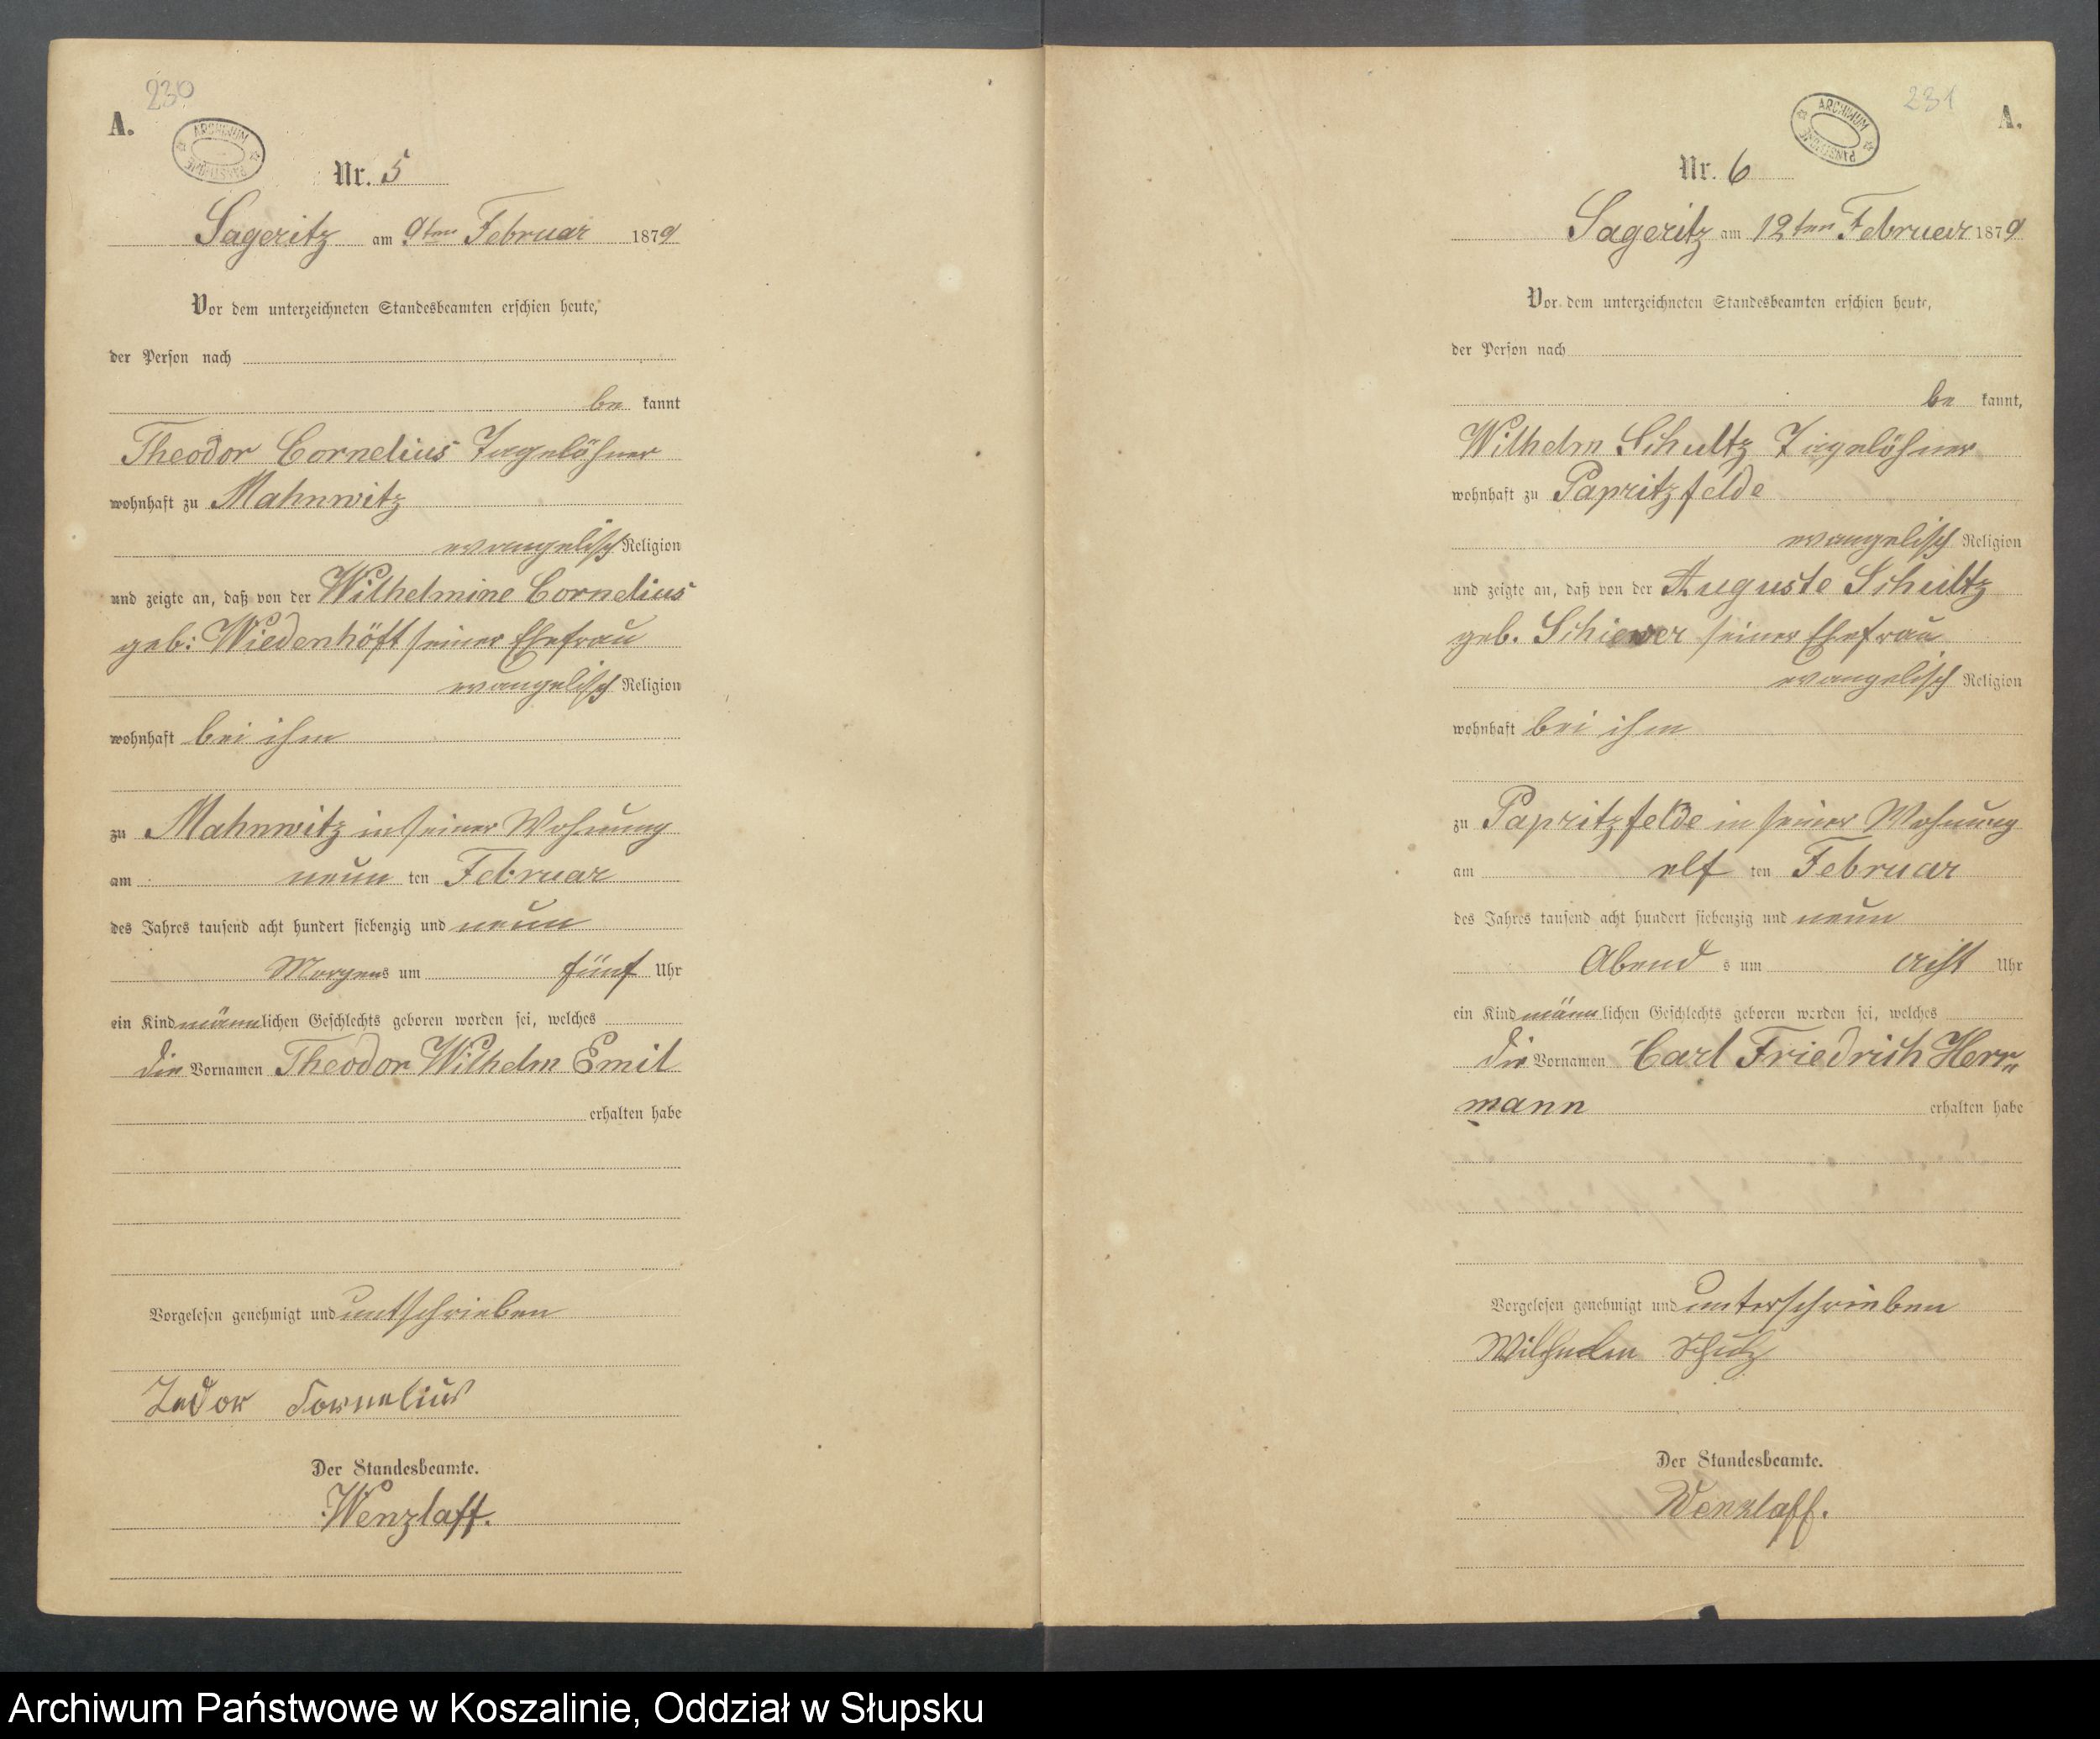 230
A.
ARCHIWUM PAŃSTWOWE
Nr. 5
Sageritz am 9ten Februar 1879
Vor dem unterzeichneten Standesbeamten erschien heute,
der Person nach
be kannt
Theodor Cornelius Tagelöhner
wohnhaft zu Mahnwitz
evangelisch Religion
und zeigte an, daß von der Wilhelmine Cornelius
geb: Wiedenhöft seiner Ehefrau
evangelisch Religion
wohnhaft bei ihm
zu Mahnwitz in seiner Wohnung
am neun ten Februar
des Jahres tausend acht hundert siebenzig und neun
Morgens um fünf Uhr
ein Kind männlichen Geschlechts geboren worden sei, welches
die Vornamen Theodor Wilhelm Emil
erhalten habe
Vorgelesen genehmigt und untschrieben
Tedor Cornelius
Der Standesbeamte.
Wenzlaff.
231
A.
ARCHIWUM PAŃSTWOWE
Nr. 6
Sageritz am 12ten Februar 1879
Vor dem unterzeichneten Standesbeamten erschien heute,
der Person nach
be kannt,
Wilhelm Schultz Tagelöhner
wohnhaft zu Papritzfelde
evangelisch Religion
und zeigte an, daß von der Auguste Schultz
geb. Schiewer seiner Ehefrau
evangelisch Religion
wohnhaft bei ihm
zu Papritzfelde in seiner Wohnung
am elf ten Februar
des Jahres tausend acht hundert siebenzig und neun
Abend s um acht Uhr
ein Kind männlichen Geschlechts geboren worden sei, welches
die Vornamen Carl Friedrich Herr„
mann erhalten habe
Vorgelesen genehmigt und unterschrieben
Wilhelm Schulz
Der Standesbeamte.
Wenzlaff.
Archiwum Państwowe w Koszalinie, Oddział w Słupsku